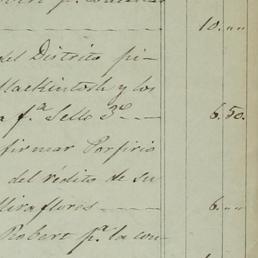 10. ,, ,,
del Distrito pi-
Mackintosh y los
a f.ª Sello 3º
6. 50.
firmar Porfirio
del rédito de su
Miraflores
6. ,, ,,
Robert p.ª la con-